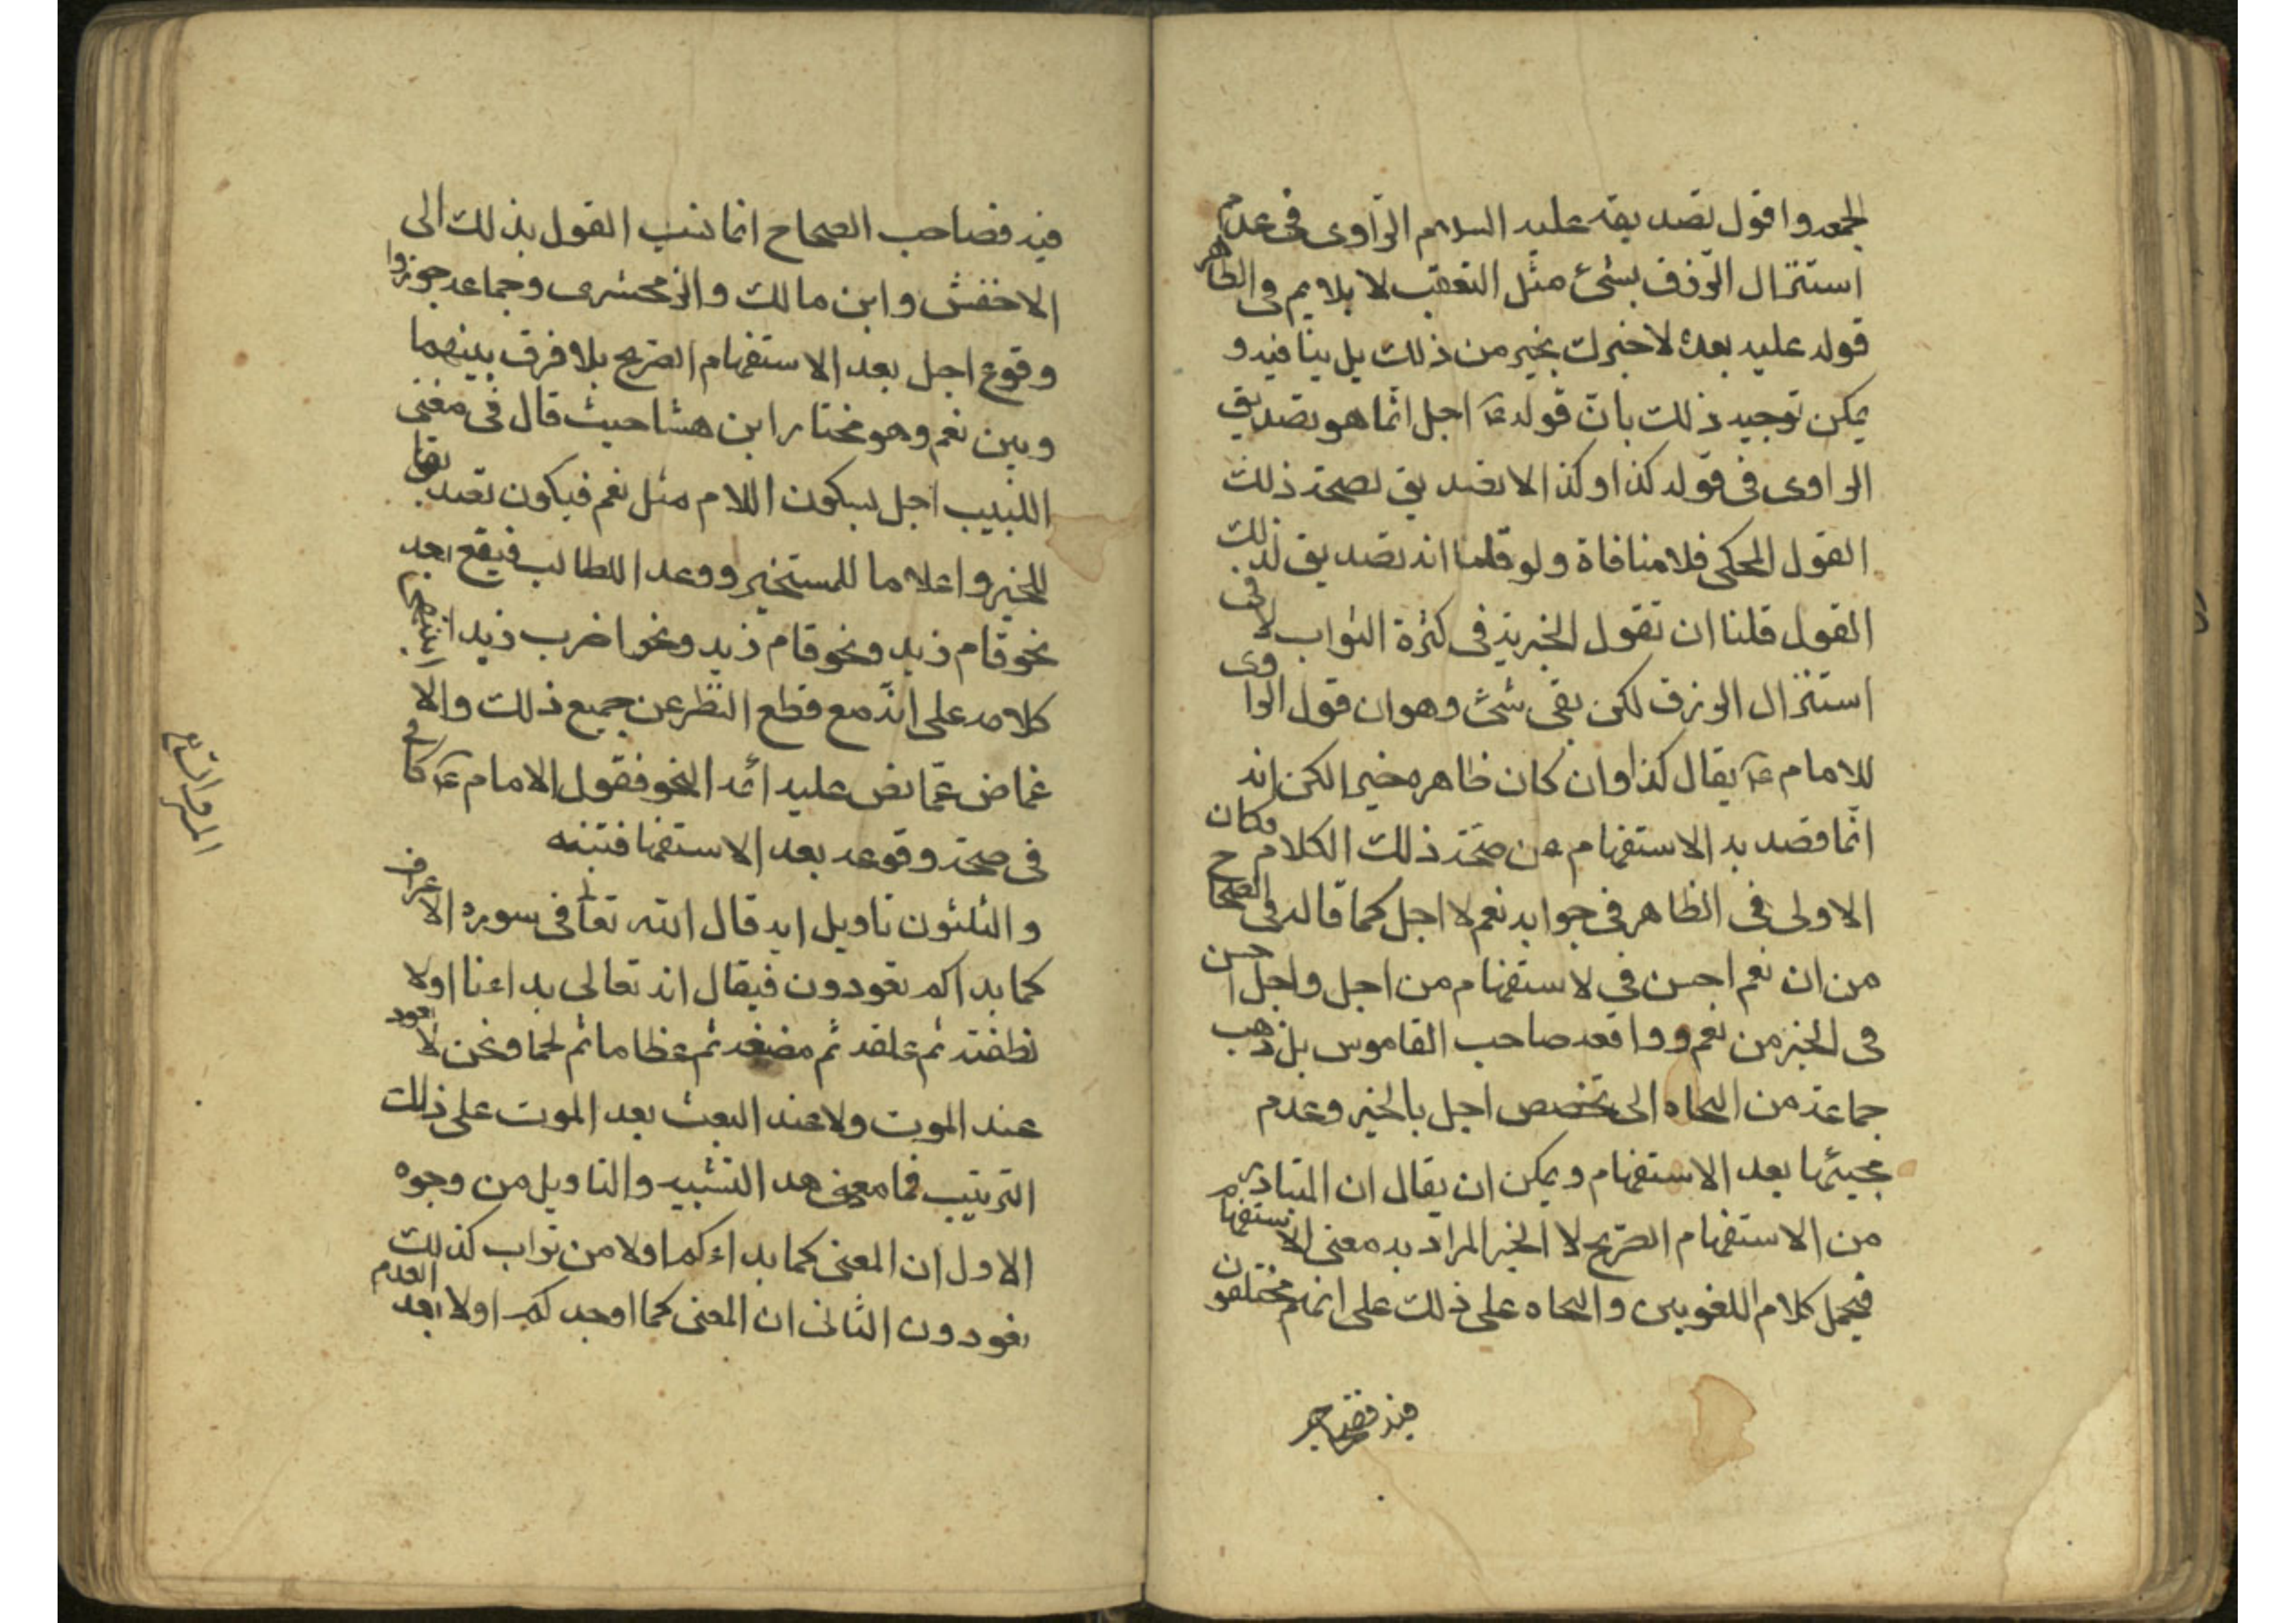 الجمعه واقول تصديقه عليه السلام الراوى فى عدم
استنزال الرزق بشئ مثل التعقيب لا يلايم فى الظاهر
قوله عليه بعده لاخبرك بخير من ذلك بل ينافيه و
يمكن توجيه ذلك بان قوله عه اجل انما هو تصديق
الراوى فى قوله كذا وكذا لا تصديق لصحة ذلك
القول المحكى فلا منافاة ولو قلنا انه تصديق لذلك
القول قلنا ان نقول الخيرية فى كثرة الثواب لا فى
استنزال الرزق لكن بقى شئ وهو ان قول الراوى
للامام عه يقال كذا وان كان ظاهره خبرا لكن انه
انما قصد به الاستفهام عن صحة ذلك الكلام فكان
الاولى فى الظاهر فى جوابه نعم لا اجل كما قاله فى الصحاح
من ان نعم احسن فى لاستفهام من اجل واجل احسن
فى الخبر من نعم ووافقه صاحب القاموس بل ذهب
جماعة من النحاه الى تخصيص اجل بالخبر وعدم
مجيئها بعد الاستفهام ويمكن ان يقال ان المتبادر
من الاستفهام الصريح لا الخبر المراد به معنى الاستفهام
فيحمل كلام اللغويين والنحاه على ذلك على انهم مختلفون
فيه فصاحب
فيه فصاحب الصحاح انما نسب القول بذلك الى
الاخفش وابن مالك والزمخشرى وجماعه جوزوا
وقوع اجل بعد الاستفهام الصريح بلا فرق بينهما
وبين نعم وهو مختار ابن هشا حيث قال فى مغنى
اللبيب اجل بسكون اللام مثل نعم فيكون تصديقا
للمخبر واعلاما للمستخبر ووعدا للطالب فيقع بعد
نحو قام زيد ونحو قام زيد ونحو اضرب زيدا انتهى
كلامه على انه مع قطع النظر عن جميع ذلك والا
غماض عما نص عليه ائمه النحو فقول الامام عه كاف
فى صحة وقوعه بعد الاستفها فتنبه
والثلثون تاويل ايه قال الله تعا فى سوره الاعراف
كما بداكم تعودون فيقال انه تعالى بداءنا اولا
نطفته ثم علقه ثم مضغه ثم عظاما ثم لحما ونحن لا نعود
عند الموت ولا عند البعث بعد الموت على ذلك
الترتيب فما معنى هد التشبيه والتاويل من وجوه
الاول ان المعنى كما بداءكم اولا من تراب كذلك
تعودون الثانى ان المعنى كما اوجدكم اولا بعد العدم